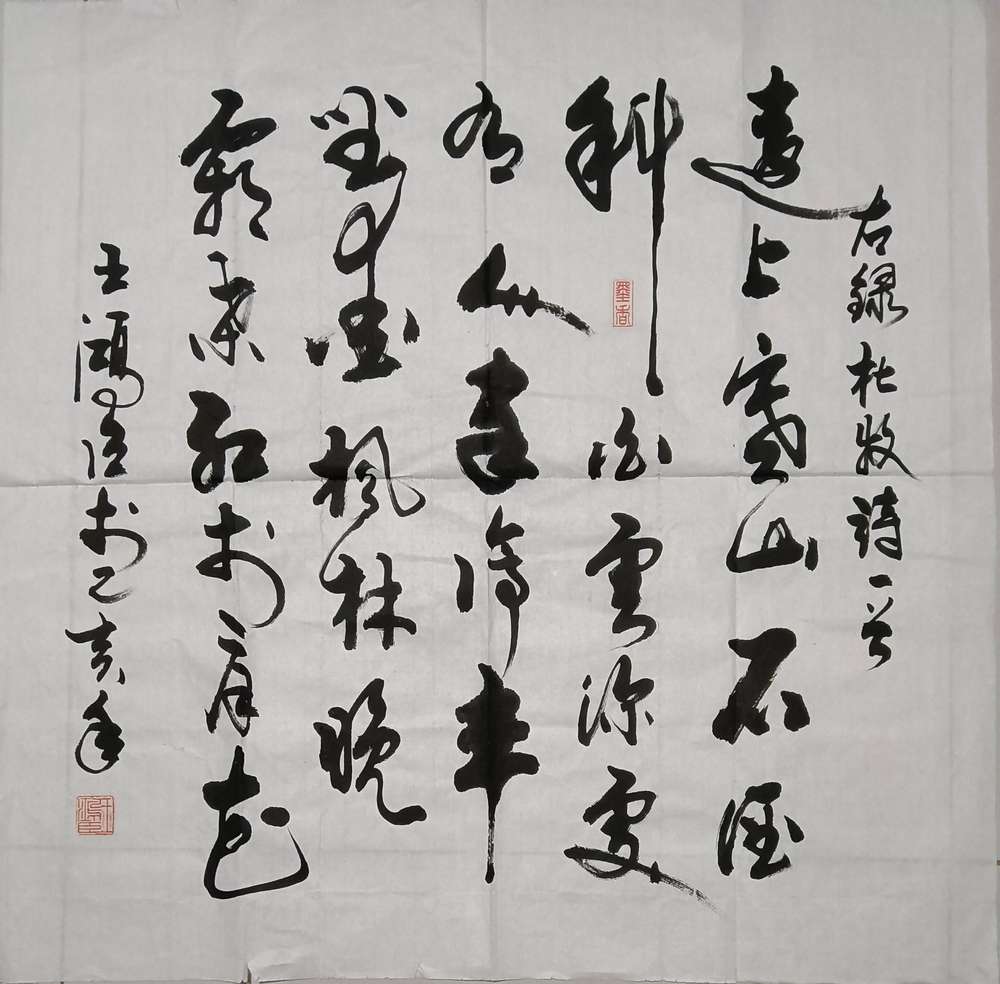 右録杜牧詩一首
遠上寒山石徑
斜白雲深處
有人家停車
坐愛楓林晚
霜葉紅於二月花
王鴻於己亥年
墨香